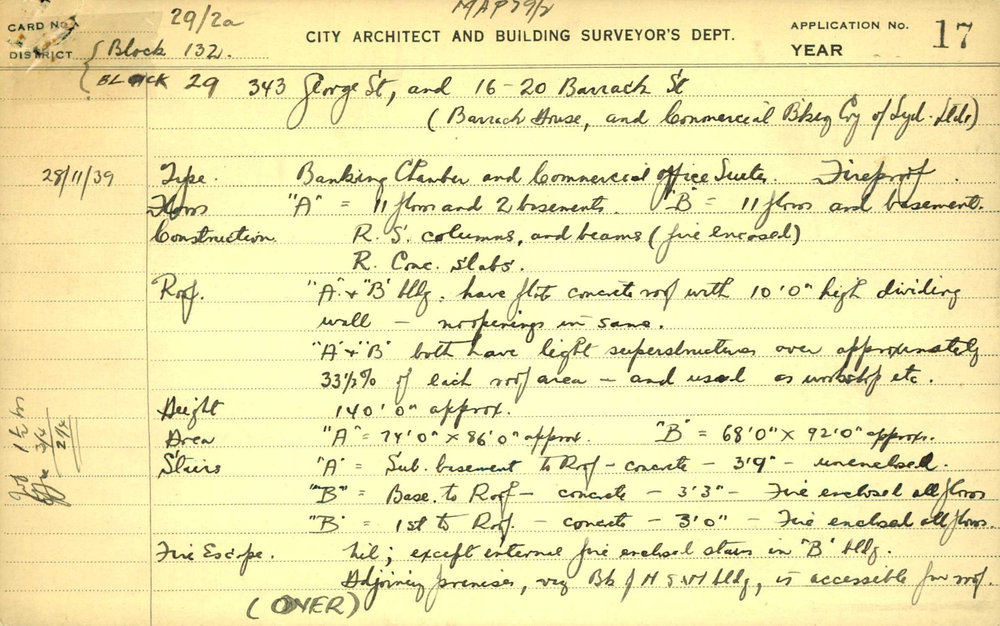 MAP 29/2
CARD No. 29/2a
CITY ARCHITECT AND BUILDING SURVEYOR'S DEPT.
APPLICATION No. 17
YEAR
DISTRICT { Block 132.
BLOCK 29 343 George St, and 16-20 Barrack St
(Barrack House, and Commercial Bkg Coy of Syd. Bldg)
28/11/39 Type. Banking Chamber and Commercial Office Suites. Fireproof.
Floors "A" = 11 floors and 2 basements. "B" = 11 floors and basement.
Construction. R. S. columns, and beams (fire encased)
R. Conc. slabs.
Roof. "A" & "B" bldg. have flat concrete roof with 10'0" high dividing
wall — no openings in same.
"A" & "B" both have light superstructures over approximately
33⅓% of each roof area — and used as workshop etc.
Height 140'0" approx.
Area "A" = 74'0" x 86'0" approx. "B" = 68'0" x 92'0" approx.
Stairs "A" = Sub. basement to Roof - concrete - 3'9" - unenclosed.
"B" = Base. to Roof - concrete - 3'3" - Fire enclosed all floors
"B" = 1st to Roof. - concrete - 3'0" - Fire enclosed all floors.
Fire Escape. Nil; except external fire enclosed stairs in "B" bldg.
Adjoining premises, viz Bk of N S W bldg, is accessible from roof.
(OVER)
1½ hrs
3/4
2¼